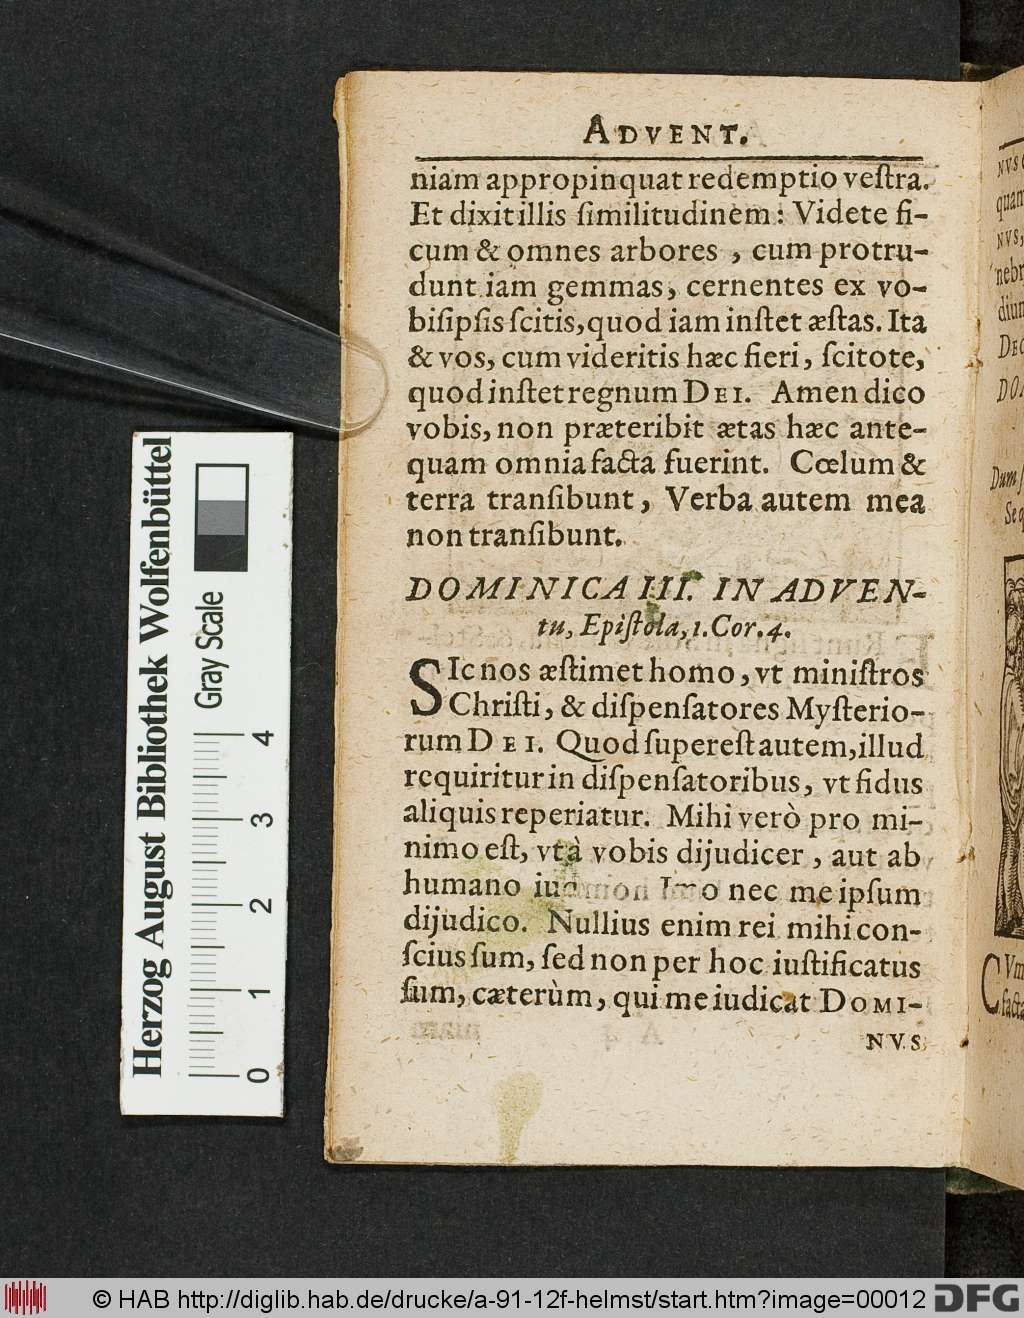 ADVENT.
niam appropinquat redemptio veſtra.
Et dixit illis ſimilitudinem: Videte fi-
cum & omnes arbores , cum protru-
dunt iam gemmas, cernentes ex vo-
biſipſis ſcitis, quod iam inſtet æſtas. Ita
& vos, cum videritis hæc fieri, ſcitote,
quod inſtet regnum DEI. Amen dico
vobis, non præteribit ætas hæc ante-
quam omnia facta fuerint. Cœlum &
terra tranſibunt, Verba autem mea
non tranſibunt.
DOMINICA III. IN ADVEN-
tu, Epiſtola, 1. Cor. 4.
SIc nos æſtimet homo, vt miniſtros
Chriſti, & diſpenſatores Myſterio-
rum DEI. Quod ſupereſt autem, illud
requiritur in diſpenſatoribus, vt fidus
aliquis reperiatur. Mihi verò pro mi-
nimo eſt, vt à vobis dijudicer, aut ab
humano nec me ipſum
dijudico. Nullius enim rei mihi con-
ſcius ſum, ſed non per hoc iuſtificatus
ſum, cæterùm, qui me iudicat DOMI-
NVS
Herzog August Bibliothek Wolfenbüttel
Gray Scale
0 1 2 3 4
NVS
quam
NVS,
nebr
diun
DEC
DO
Dum
Se
CVm
facta
© HAB http://diglib.hab.de/drucke/a-91-12f-helmst/start.htm?image=00012
DFG